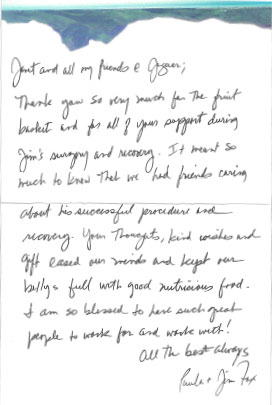 and all my friends @
Thank you so very much for the fruit
basket and for all of your support during
Jim's surgery and recovery. It meant so
much to know that we had friends caring
about his successful procedure and
recovery. Your thoughts, kind wishes and
gift eased our minds and kept our
bellys full with good nutricious food.
I am so blessed to have such great
people to work for and work with!
All the best always
Paula + Jim Fox